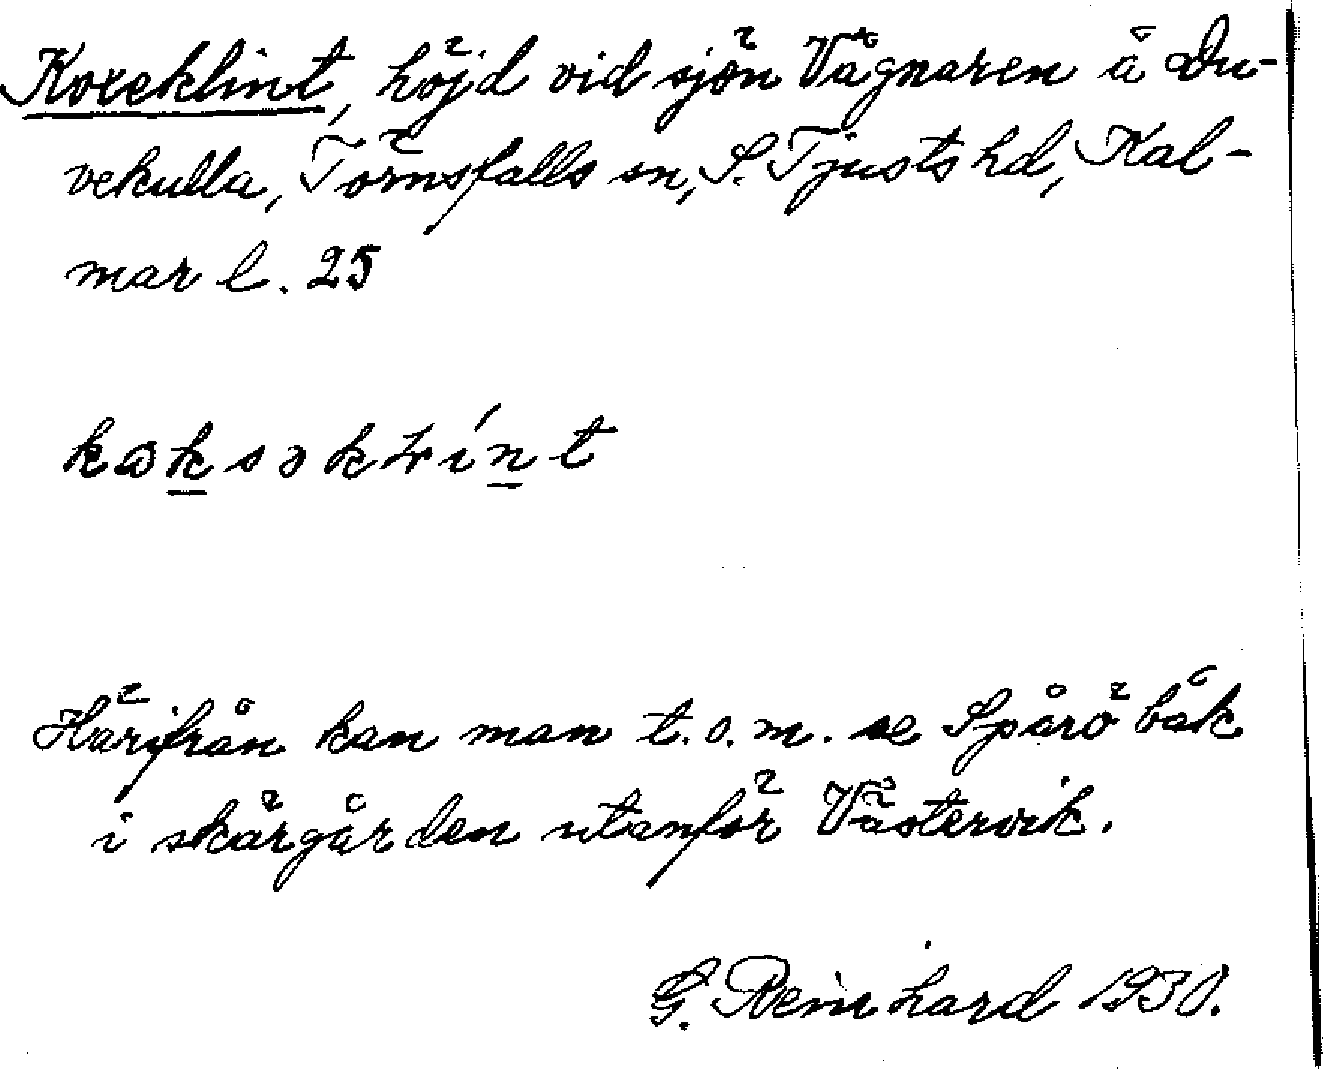 Koxeklint, höjd vid sjön Vågnaren å Du-
vekulla, Törnsfalls sn, S. Tjusts hd, Kal-
mar l. 25
Härifrån kan man t.o.m. se Spårö båk
i skärgården utanför Västervik.
G. Reinhard 1930.